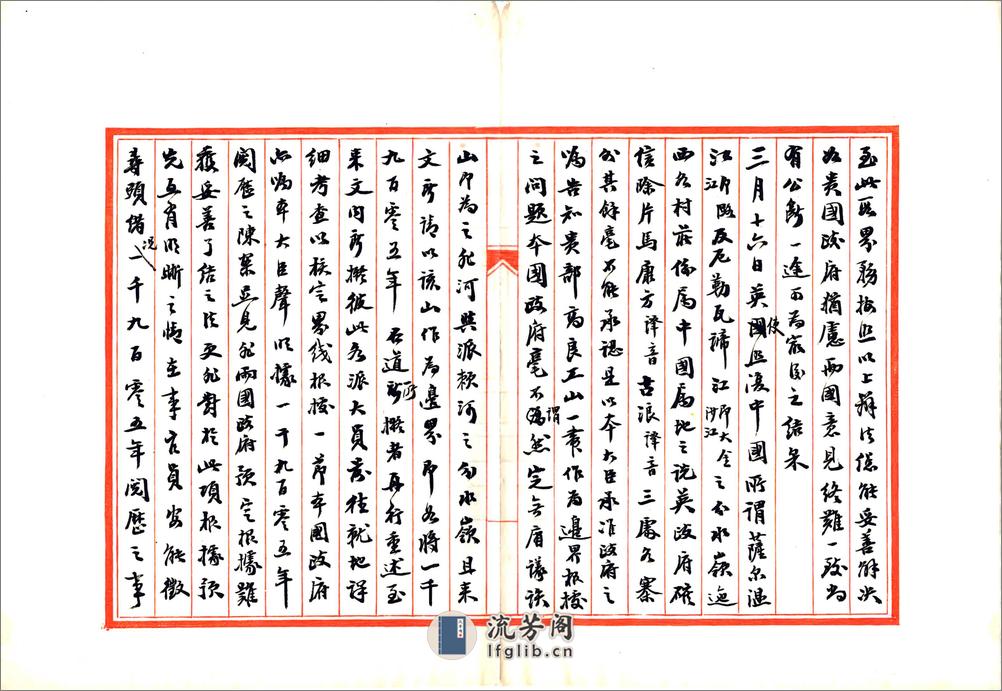 至此段界務按照以上辦法總能妥善解決
如貴國政府猶慮兩國意見終難一致尚
有公斷一途可為最後之結果
三月十六日英使照復中國所謂薩爾温
江片路及厄勒瓦諦江即大金沙江之分水嶺迤
西各村莊係屬中國屬地之說英政府礙
信除片馬康方譯音古浪譯音三處各寨
外其餘毫不能承認是以本大臣承准政府之
為告知貴部高良工山一帶作為邊界根據
之問題本國政府毫不謂然定無庸議該
山即為之非河與派賴河之分水嶺且來
文所請以該山作為邊界即如將一千
九百零五年石道所擬者再行重述至
來文内所擬彼此各派大員前往就地詳
細考查以核定界線根據一節本國政府
以為本大臣聲明據一千九百零五年
閱歷之陳案並見非兩國政府預定根據難
獲妥善了結之法更非對於此項根據預
先互有明晰之情在事官員安能徵
尋頭緒況一千九百零五年閱歷之事
流芳阁
lfglib.cn